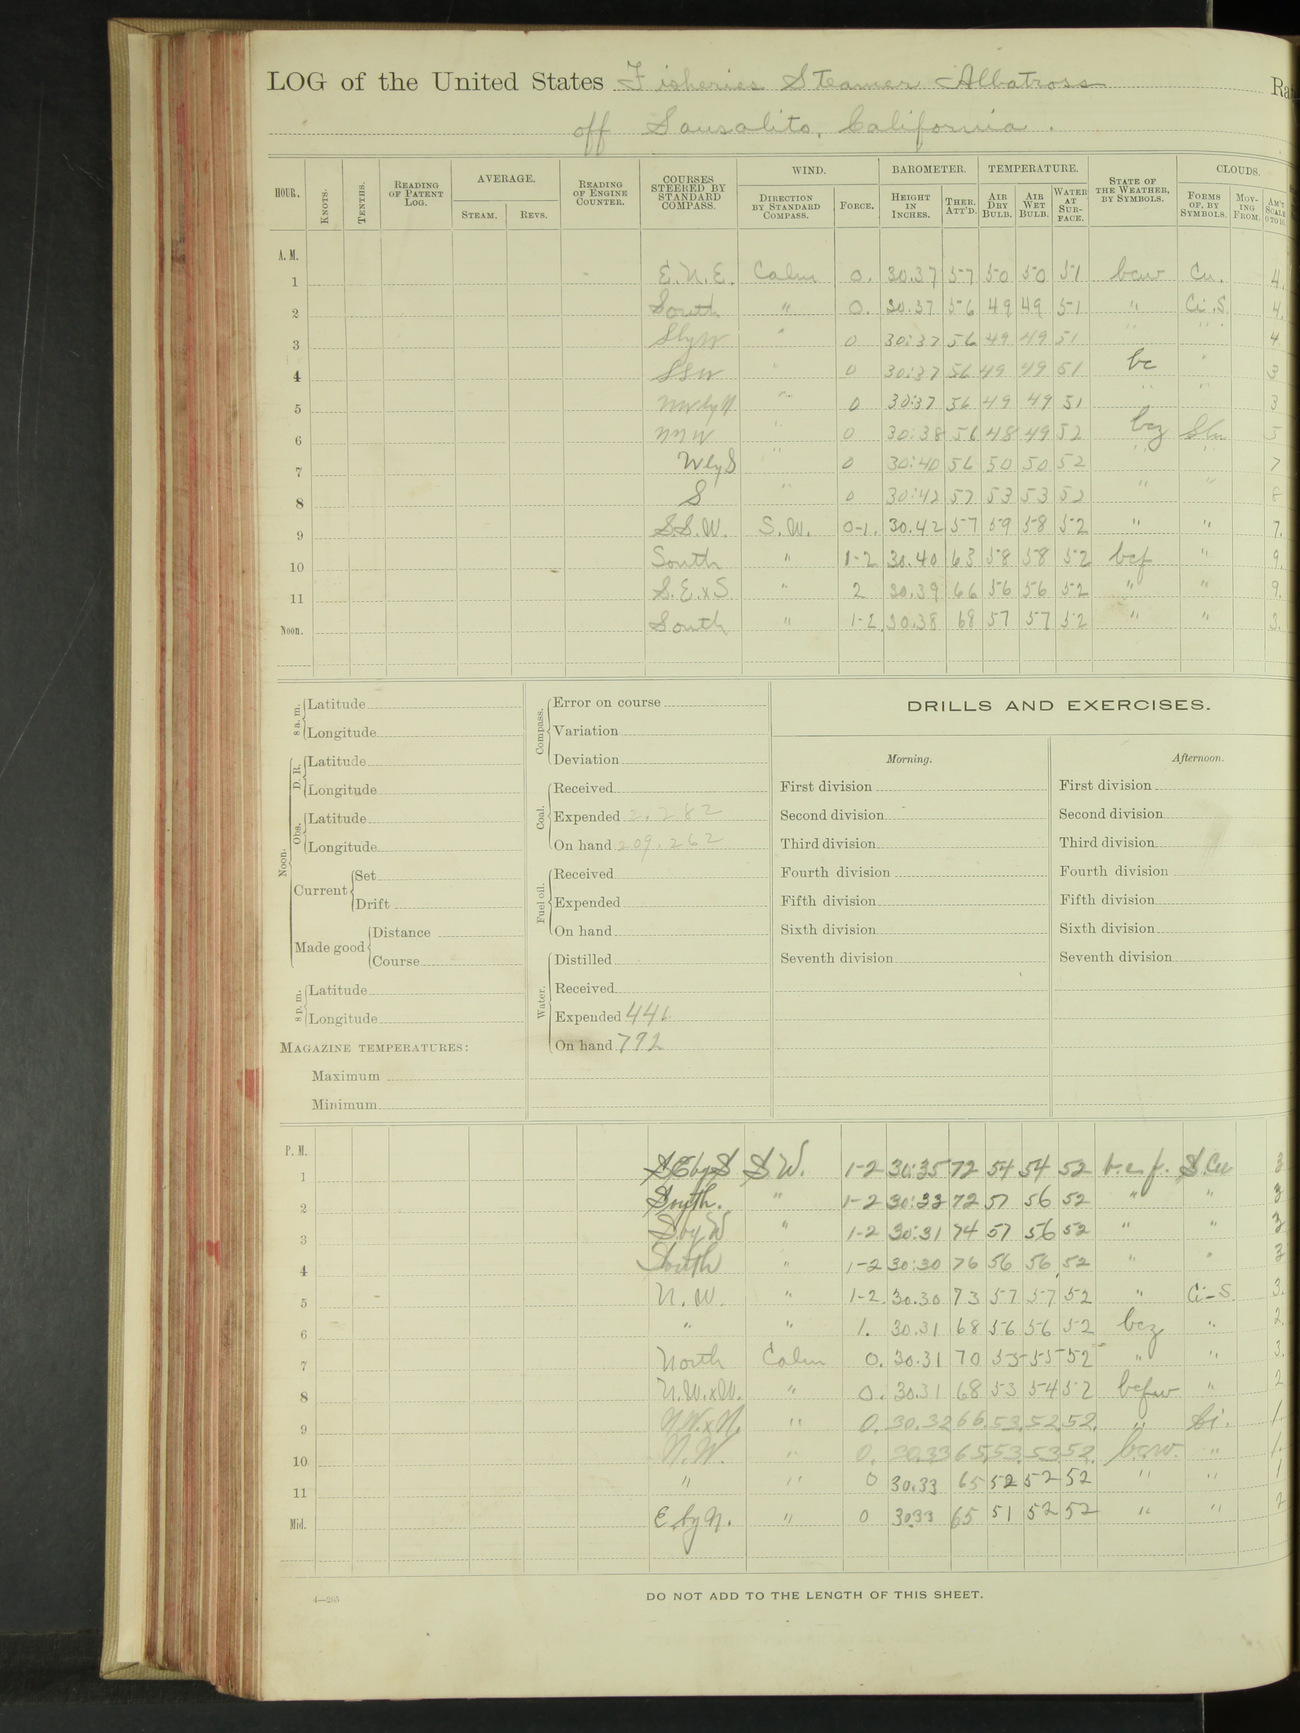 LOG of the United States Fisheries Steamer Albatross Ra
off Sausalito, California.
HOUR. KNOTS. TENTHS. READING OF PATENT LOG. AVERAGE. STEAM. REVS. READING OF ENGINE COUNTER. COURSES STEERED BY STANDARD COMPASS. WIND. DIRECTION BY STANDARD COMPASS. FORCE. BAROMETER. HEIGHT IN INCHES. THER. ATT'D. TEMPERATURE. AIR DRY BULB. AIR WET BULB. WATER AT SURFACE. STATE OF THE WEATHER, BY SYMBOLS. CLOUDS. FORMS OF, BY SYMBOLS. MOVING FROM. AM'T SCALE 0 TO 10.
A. M.
1 E.N.E. Calm 0. 30.37 57 50 50 51 bcw Cu. 4.
2 South " 0. 30.37 56 49 49 51 " Ci.S. 4.
3 SbyW " 0 30:37 56 49 49 51 " " 4
4 SSW " 0 30:37 56 49 49 51 bc " 3
5 NWbyN " 0 30:37 56 49 49 51 " " 3
6 NNW " 0 30:38 56 48 49 52 bcz 5
7 WbyS " 0 30:40 56 50 50 52 " " 7
8 S " 0 30:42 57 53 53 52 " " 8
9 S.S.W. S.W. 0-1. 30.42 57 59 58 52 " " 7.
10 South " 1-2 30.40 63 58 58 52 bcf " 9.
11 S.E.xS. " 2 30.39 66 56 56 52 " " 9.
Noon. South " 1-2 30.38 68 57 57 52 " " 3.
8 a. m. Latitude
Longitude
Noon. D. R. Latitude
Longitude
Obs. Latitude
Longitude
Current Set
Drift
Made good Distance
Course
8 p. m. Latitude
Longitude
MAGAZINE TEMPERATURES:
Maximum
Minimum
Compass. Error on course
Variation
Deviation
Coal. Received
Expended 2.282
On hand 209.262
Fuel oil. Received
Expended
On hand
Water. Distilled
Received
Expended 441
On hand 792
DRILLS AND EXERCISES.
Morning. Afternoon.
First division First division
Second division Second division
Third division Third division
Fourth division Fourth division
Fifth division Fifth division
Sixth division Sixth division
Seventh division Seventh division
P. M.
1 SEbyS SW. 1-2 30:35 72 54 54 52 b.c.f. S.Cu 3
2 South. " 1-2 30:33 72 57 56 52 " " 3
3 S.byW " 1-2 30:31 74 57 56 52 " " 3
4 South " 1-2 30:30 76 56 56 52 " " 3
5 N.W. " 1-2. 30.30 73 57 57 52 " Ci-S. 3.
6 " " 1. 30.31 68 56 56 52 bcz " 2.
7 North Calm 0. 30.31 70 55 55 52 " " 3.
8 N.W.xW. " 0. 30.31 68 53 54 52 bcfw " 2
9 NW.xN. " 0. 30.32 66. 53. 52. 52. " Ci. 1.
10 N.W. " 0. 30.33 65. 53. 53 52. bcw. " 1.
11 " " 0 30.33 65 52 52 52 " " 1
Mid. E.byN. " 0 30.33 65 51 52 52 " " 2
4—265 DO NOT ADD TO THE LENGTH OF THIS SHEET.